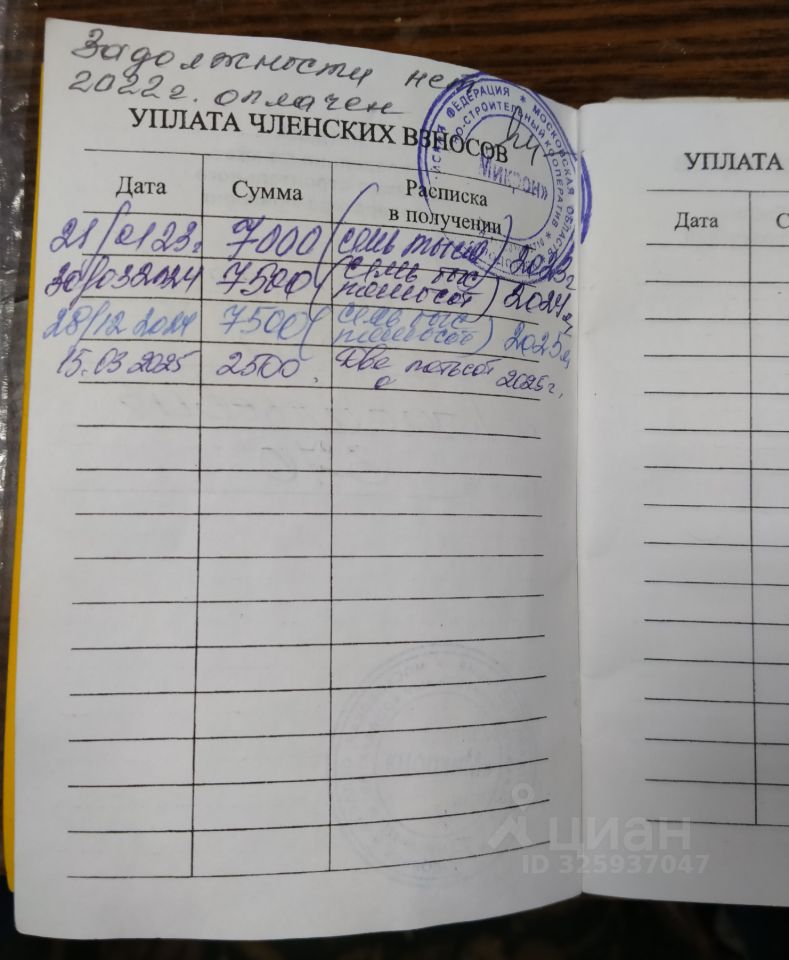 Задолжности нет
2022г. оплачен
УПЛАТА ЧЛЕНСКИХ ВЗНОСОВ
Дата Сумма Расписка в получении
21/0123г. 7000 (семь тысяч) 2023г
30/032024 7500 (семь тыс пятьсот) 2024г,
28/12 2024 7500 (семь тыс пятьсот) 2025г,
15.03 2025 2500. Две пятьсот 2025г,
ФЕДЕРАЦИЯ * МОСКОВСКАЯ ОБЛАСТЬ
О-СТРОИТЕЛЬНЫЙ КООПЕРАТИВ
МИКРОН»
УПЛАТА
Дата С
циан
ID 325937047